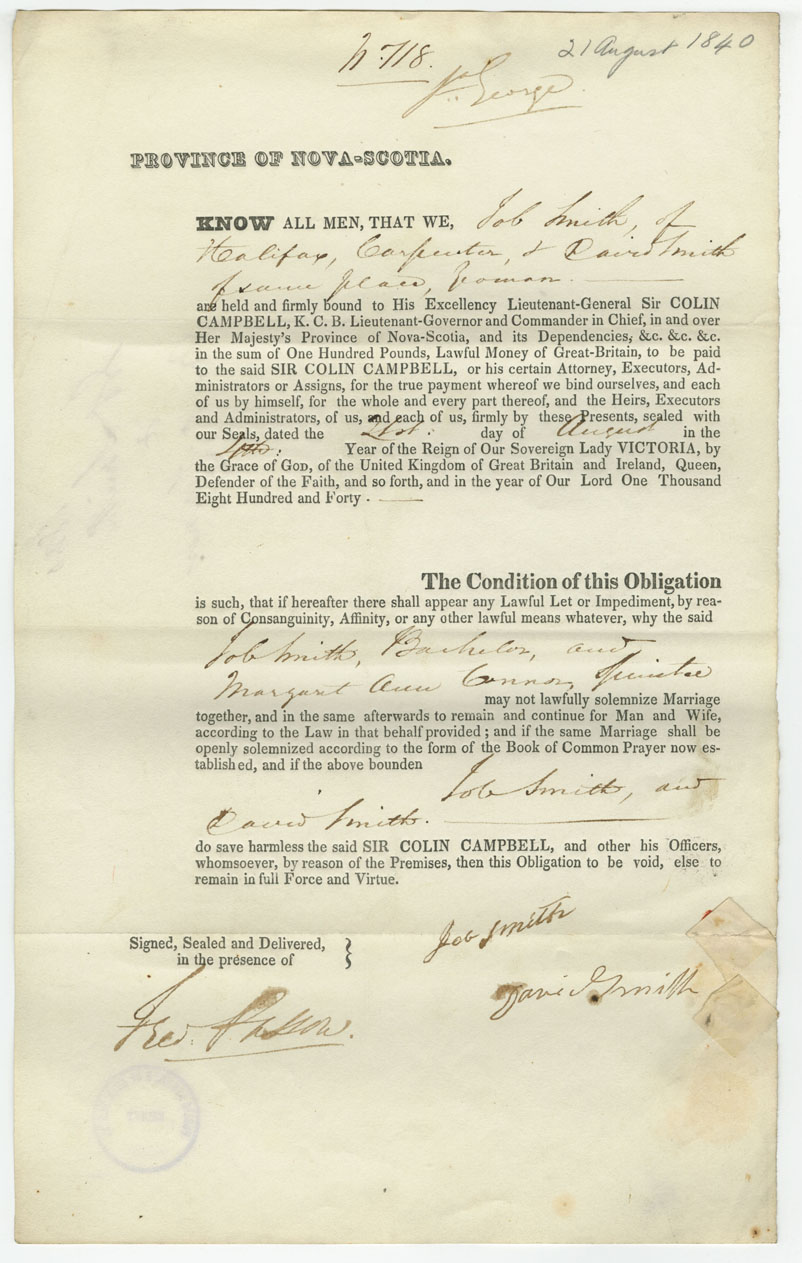 No. 718.
21 August 1840
St. George
PROVINCE OF NOVA-SCOTIA.
KNOW ALL MEN, THAT WE, Job Smith, of
Halifax, Carpenter, & David Smith
of same place, Yeoman
are held and firmly bound to His Excellency Lieutenant-General Sir COLIN
CAMPBELL, K. C. B. Lieutenant-Governor and Commander in Chief, in and over
Her Majesty's Province of Nova-Scotia, and its Dependencies, &c. &c. &c.
in the sum of One Hundred Pounds, Lawful Money of Great-Britain, to be paid
to the said SIR COLIN CAMPBELL, or his certain Attorney, Executors, Ad-
ministrators or Assigns, for the true payment whereof we bind ourselves, and each
of us by himself, for the whole and every part thereof, and the Heirs, Executors
and Administrators, of us, and each of us, firmly by these Presents, sealed with
our Seals, dated the 21st. day of August in the
4th. Year of the Reign of Our Sovereign Lady VICTORIA, by
the Grace of GOD, of the United Kingdom of Great Britain and Ireland, Queen,
Defender of the Faith, and so forth, and in the year of Our Lord One Thousand
Eight Hundred and Forty .
The Condition of this Obligation
is such, that if hereafter there shall appear any Lawful Let or Impediment, by rea-
son of Consanguinity, Affinity, or any other lawful means whatever, why the said
Job Smith, Bachelor, and
Margaret Ann Connor, Spinster
may not lawfully solemnize Marriage
together, and in the same afterwards to remain and continue for Man and Wife,
according to the Law in that behalf provided ; and if the same Marriage shall be
openly solemnized according to the form of the Book of Common Prayer now es-
tablished, and if the above bounden
Job Smith, and
David Smith.
do save harmless the said SIR COLIN CAMPBELL, and other his Officers,
whomsoever, by reason of the Premises, then this Obligation to be void, else to
remain in full Force and Virtue.
Signed, Sealed and Delivered,
in the presence of
Job Smith
David Smith
Fred.